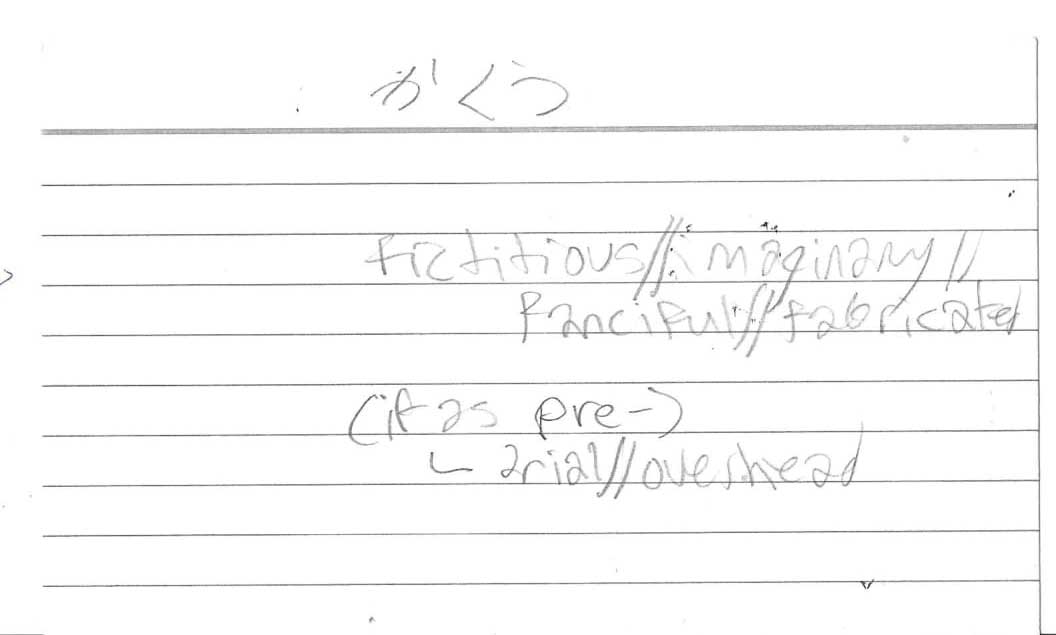 かくう
fictitious//imaginary//
fanciful//fabricated
(if as pre-)
∟ arial//overhead